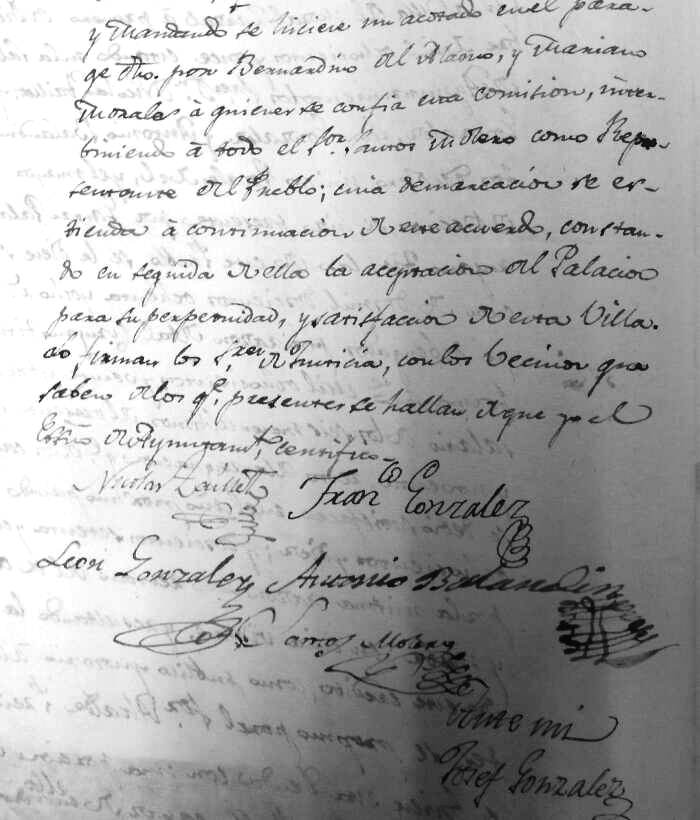 y Mandando se hiciere un acotado en el para-
ge dho. por Bernardino del Alamo, y Mariano
Morales à quienes se confia esta comision, inter-
biniendo à todo el Sor. Santos Molero como Repre-
sentante del Pueblo; cuia demarcacion se es-
tienda à continuacion de este acuerdo, constan-
do en seguida de ella la aceptacion del Palacio
para su perpetuidad, y satisfaccion de esta Villa.
firman los Sres. de Justicia, con los Vecinos que
saben de los qe. presentes se hallan de que yo el
Essno de Ayuntamto. certifico
Nicolas Franco Gonzalez
Leon Gonzalez Antonio Balandin
Santos Molero
Ante mi
Josef Gonzalez